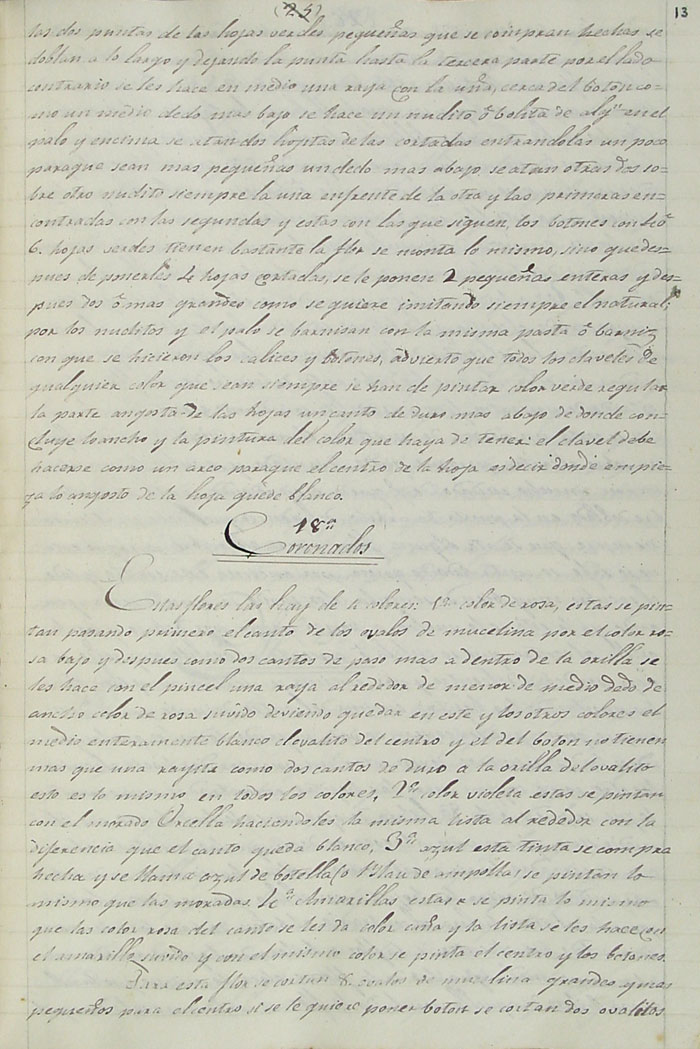 (25)
13
las dos puntas de las hojas verdes pequeñas que se compran hechas se
doblan a lo largo y dejando la punta hasta la tercera parte por el lado
contrario se les hace en medio una raya con la uña, cerca del boton co-
mo un medio dedo mas bajo se hace un nudito ó bolita de algn. en el
palo y encima se atan dos hojitas de las cortadas entrandolas un poco
paraque sean mas pequeñas un dedo mas abajo se atan otras dos so-
bre otro nudito siempre la una enfrente de la otra y las primeras en-
contradas con las segundas y estas con las que siguen, los botones con 4 ó
6. hojas verdes tienen bastante la flor se monta lo mismo, sino que des-
pues de ponerles 4 hojas cortadas, se le ponen 2 pequeñas enteras y des-
pues dos ó mas grandes como se quiere imitando siempre el natural;
por los nuditos y el palo se barnisan con la misma pasta ó barniz
con que se hicieron los calices y botones, advierto que todos los claveles de
qualquier color que sean siempre se han de pintar color verde regular
la parte angosta de las hojas un canto de duro mas abajo de donde con-
cluye lo ancho y la pintura del color que haya de tener el clavel debe
hacerse como un arco paraque el centro de la hoja es decir donde empie-
za lo angosto de la hoja quede blanco.
18a
Coronados
Estas flores las hay de 4 colores: 1a. color de rosa, estas se pin-
tan pasando primero el canto de los ovalos de mucelina por el color ro-
sa bajo y despues como dos cantos de paso mas adentro de la orilla se
les hace con el pincel una raya al rededor de menor de medio dedo de
ancho color de rosa suvido deviendo quedar en este y los otros colores el
medio enteramente blanco el ovalito del centro y el del boton no tienen
mas que una rayita como dos cantos de duro a la orilla del ovalito
esto es lo mismo en todos los colores, 2a color violeta estas se pintan
con el morado Orcella haciendoles la misma lista al rededor con la
diferencia que el canto queda blanco, 3a azul esta tinta se compra
hecha y se llama azul de botella (ó blau de ampolla) se pintan lo
mismo que las moradas. 4a Amarillas estas se pinta lo mismo
que las color rosa del canto se les da color caña y la lista se les hace con
el amarillo suvido y con el mismo color se pinta el centro y los botones.
Para esta flor se cortan 8. ovalos de muselina grandes y mas
pequeños para el centro si se le quiere poner boton se cortan dos ovalitos